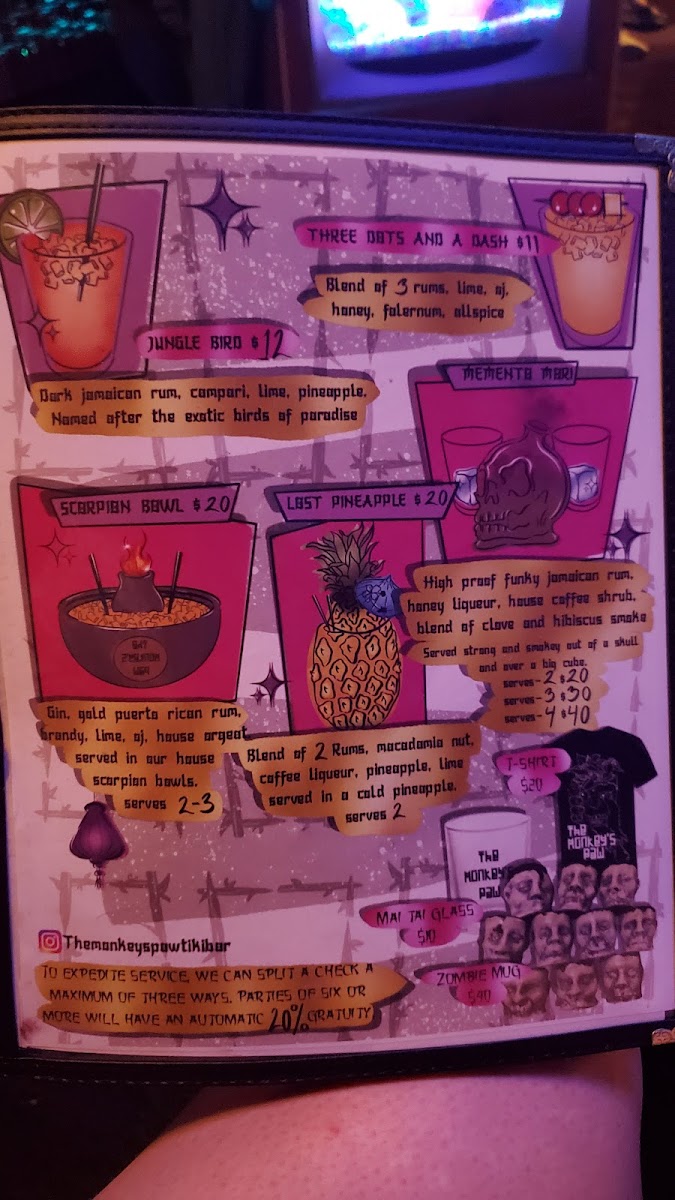 THREE DOTS AND A DASH $11
Blend of 3 rums, lime, oj,
honey, falernum, allspice
JUNGLE BIRD $12
Dark jamaican rum, campari, lime, pineapple.
Named after the exotic birds of paradise
MEMENTO MORI
High proof funky jamaican rum,
honey liqueur, house coffee shrub,
blend of clove and hibiscus smoke
Served strong and smokey out of a skull
and over a big cube.
serves-2 $20
serves-3 $30
serves-4 $40
SCORPION BOWL $20
Gin, gold puerto rican rum,
brandy, lime, oj, house orgeat
served in our house
scorpion bowls.
serves 2-3
LOST PINEAPPLE $20
Blend of 2 Rums, macadamia nut,
coffee liqueur, pineapple, lime
served in a cold pineapple.
serves 2
T-SHIRT
$20
THE
MONKEY'S
PAW
THE
MONKEY'S
PAW
MAI TAI GLASS
$10
ZOMBIE MUG
$40
Themonkeyspawtikibar
TO EXPEDITE SERVICE, WE CAN SPLIT A CHECK A
MAXIMUM OF THREE WAYS. PARTIES OF SIX OR
MORE WILL HAVE AN AUTOMATIC 20% GRATUITY